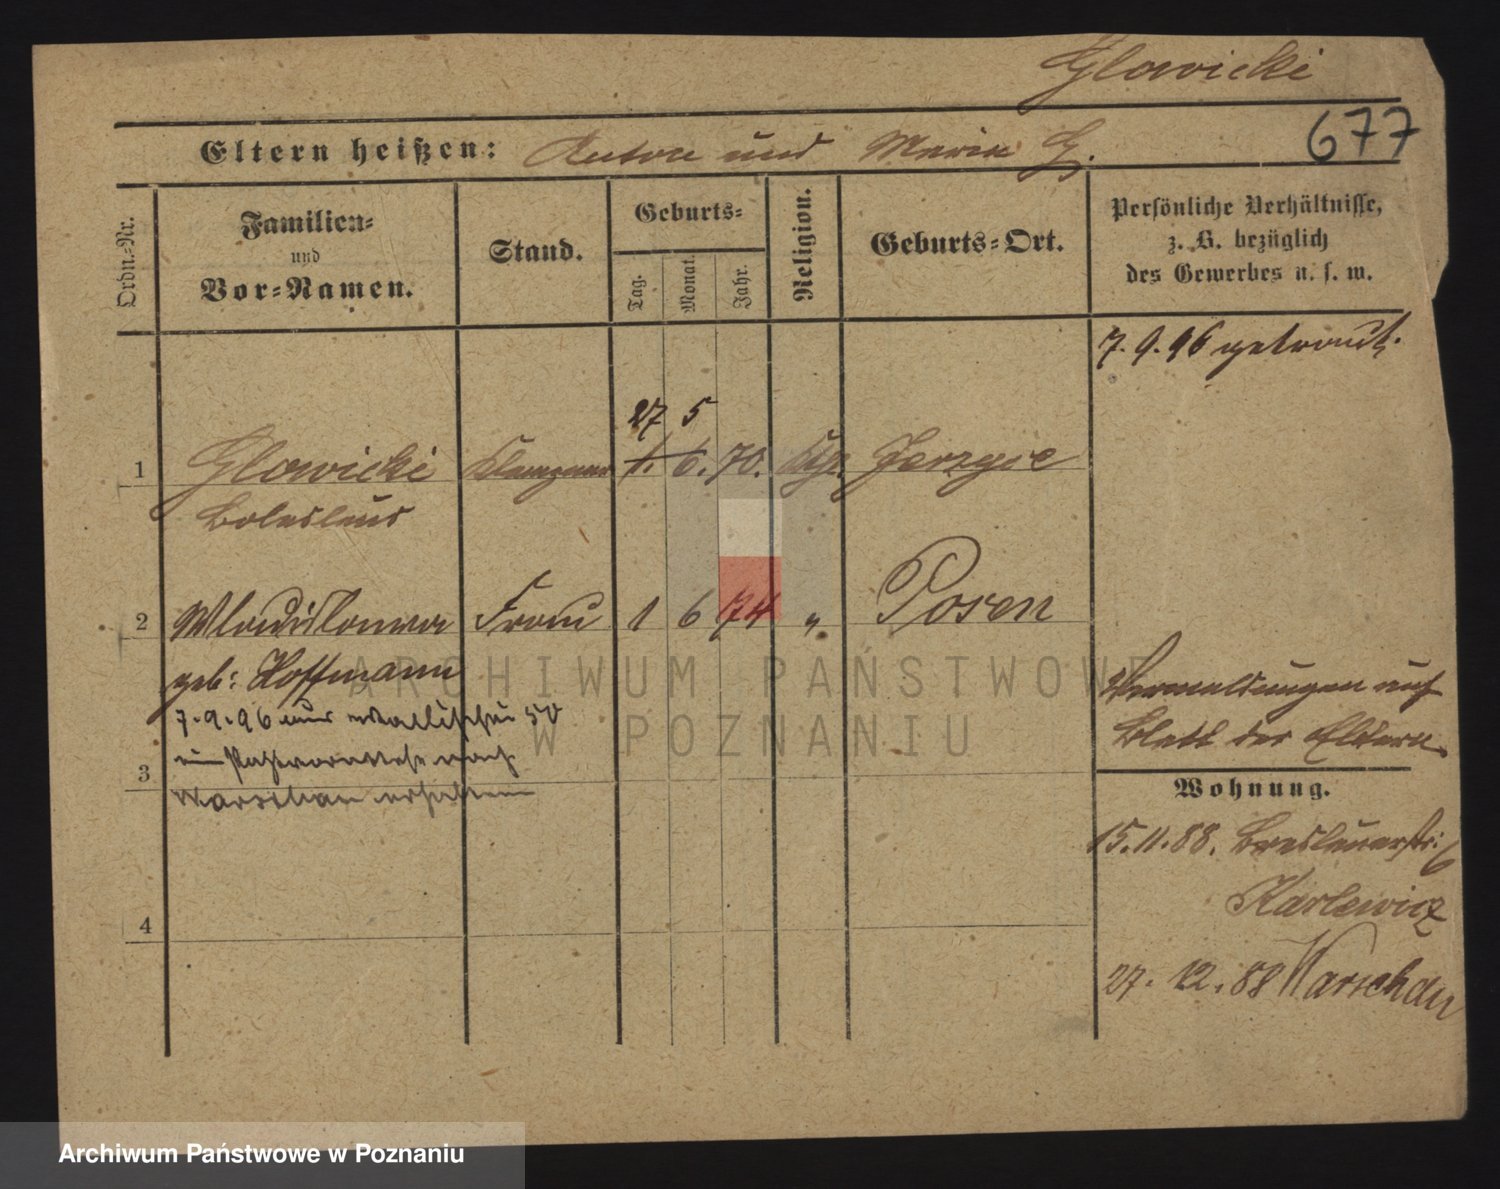 Glowicki
677
Eltern heißen: Anton und Maria G.
Ordn.-Nr.
Familien-
und
Vor-Namen.
Stand.
Geburts-
Tag.
Monat.
Jahr.
Religion.
Geburts-Ort.
Persönliche Verhältnisse,
z. B. bezüglich
des Gewerbes u. s. w.
7. 9. 96 getraut.
27 5
1 Glowicki Klempner 1. 6. 70. Kth.
Boleslaus
2 Wladislawa Frau 1 6 74 " Posen
geb: Hoffmann
7.9.96
3
Warschau erhalten
Vermeldungen auf
Blatt der Eltern
Wohnung.
15.11.88. Breslauerstr: 6
Karlewicz
4
27. 12. 88 Warschau
ARCHIWUM PAŃSTWOWE
W POZNANIU
Archiwum Państwowe w Poznaniu